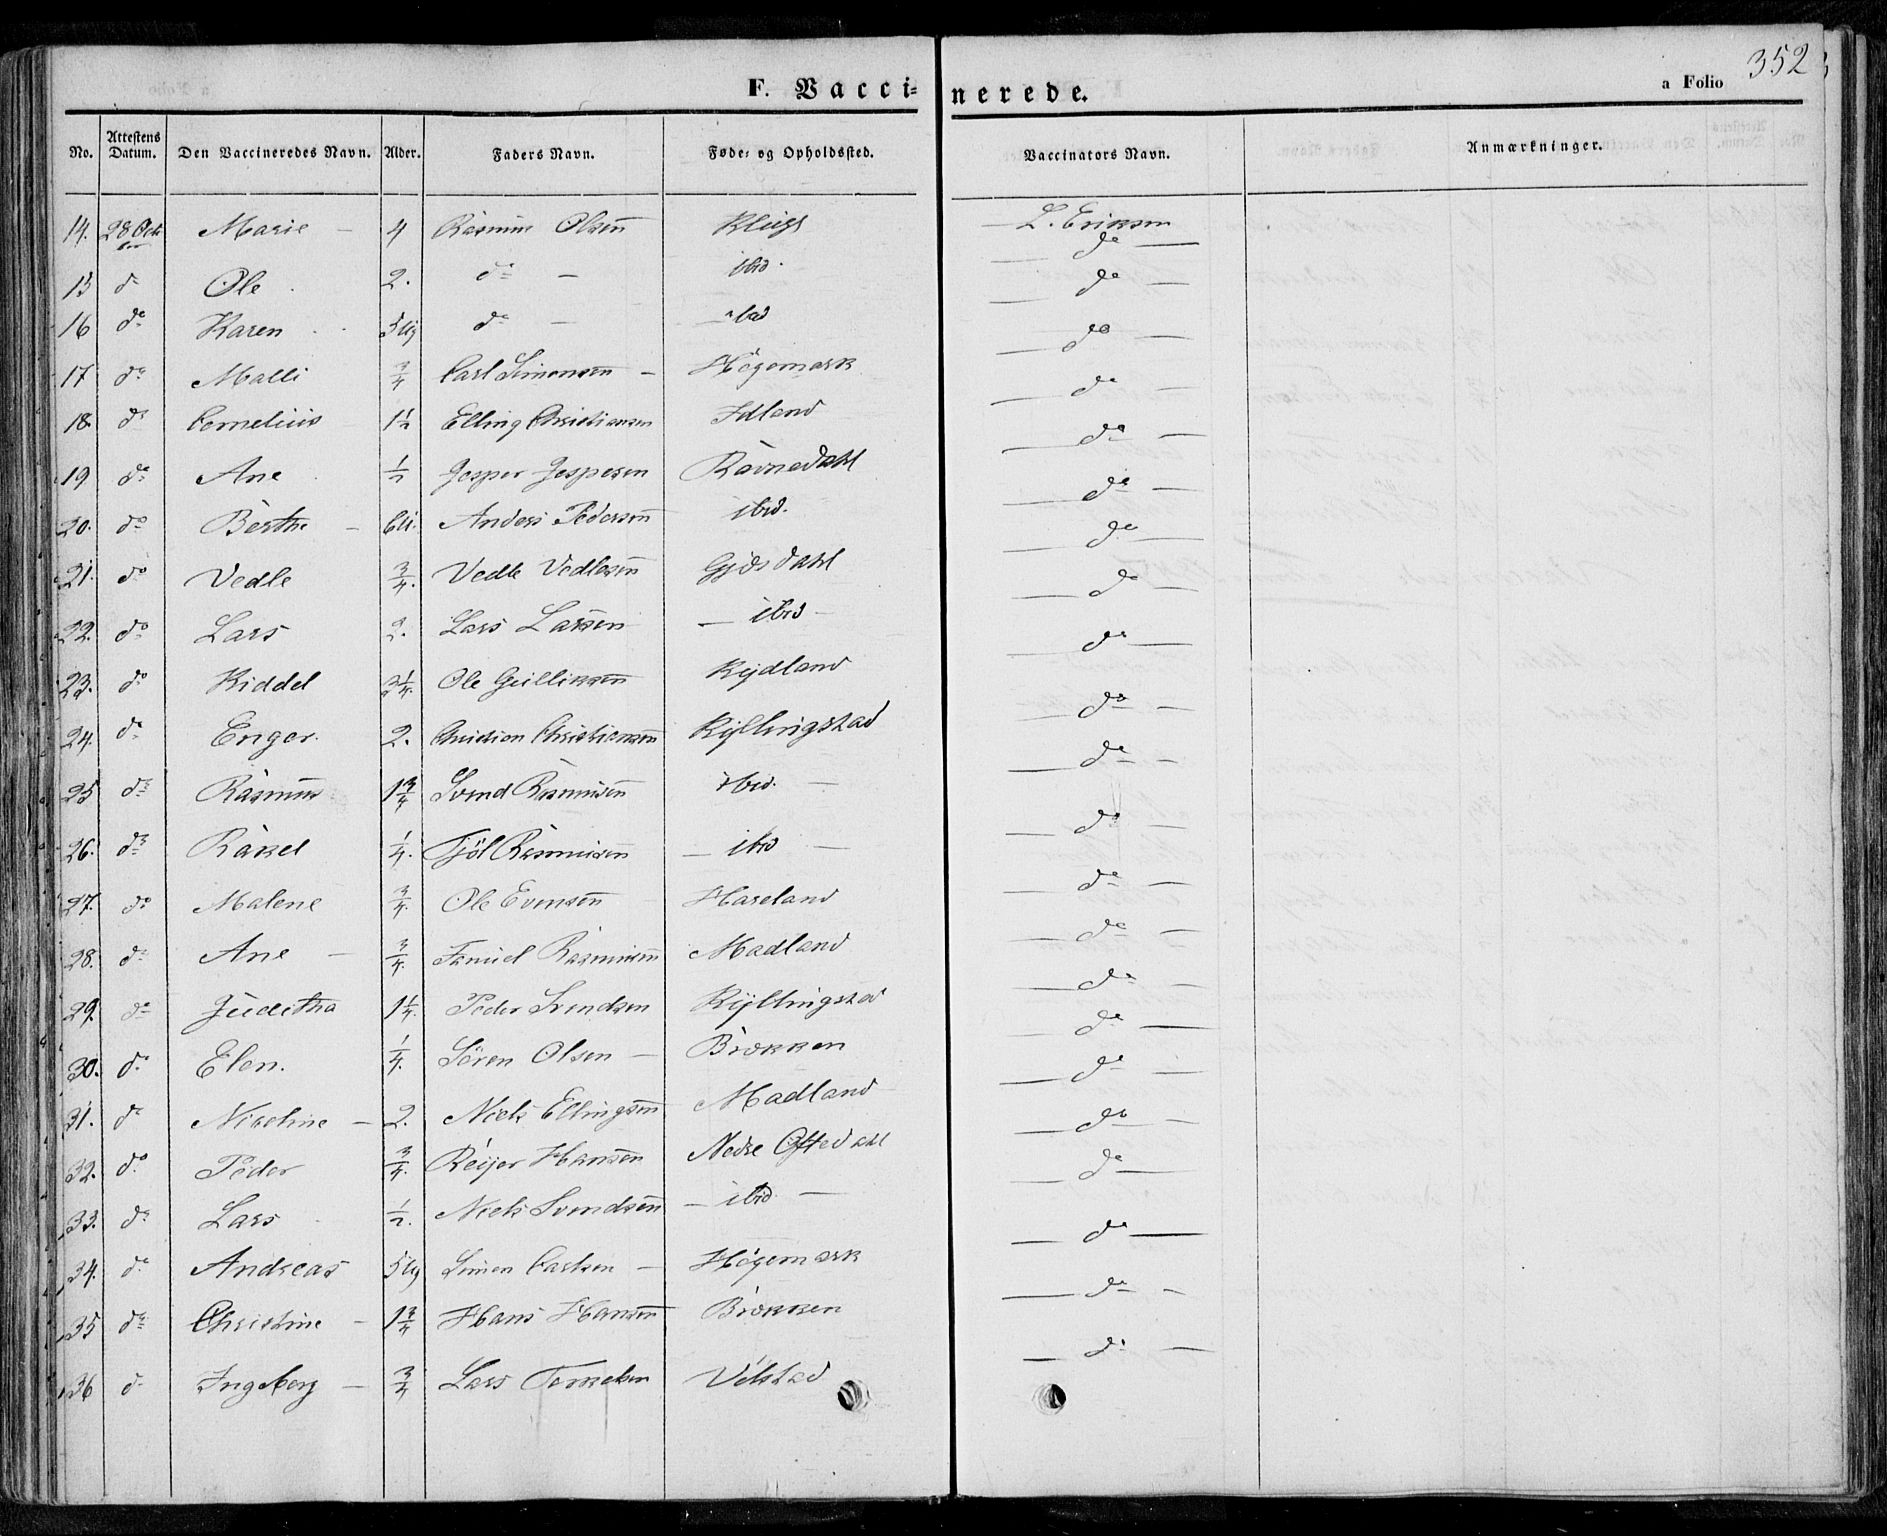 352
F. Vacci- nerede.
a Folio
No. Attestens Datum. Den Vaccineredes Navn. Alder. Faders Navn. Føde- og Opholdssted. Vaccinators Navn. Anmærkninger.
14. 28 Octbr Marie 4 Rasmus Olsen L. Eriksen
15 do Ole 2. do ibid. do
16 do Karen do ibid do
17 do Malli 3/4 Carl Simonsen Högemark do
18. do Cornelius 1 1/2 Elling Christiansen Idland do
19 do Ane 1/2 Jesper Jespersen Ravnedahl do
20. do Berthe Anders Pedersen ibid. do
21. do Vedle 3/4. Vedle Vedlesen Gjøsdahl do
22. do Lars 2. Lars Larsen ibid do
23. do Kiddel Ole Gulliksen Rydland do
24. do Enger. 2. Christian Christiansen Kyllingstad do
25 do Rasmus 1 3/4 Svend Rasmusen ibid. do
26. do Rakel 1/4. Tjöl Rasmusen ibid do
27. do Malene 3/4. Ole Evensen Haveland do
28. do Ane 3/4. Samuel Rasmusen Madland do
29. do Juditha 1 1/4. Peder Svendsen Kyllingstad do
30. do Elen. 1/4. Sören Olsen Brækken do
31. do Nicoline 2. Niels Ellingsen Madland do
32. do Peder 3/4. Reijer Hansen Nedre Oftedahl do
33. do Lars 1/2. Niels Svendsen ibid. do
34. do Andreas Simen Carlsen Högemark do
35 do Christine 1 3/4 Hans Hansen Brækken do
36 do Ingeborg 3/4 Lars Tørrelsen Vølstad do